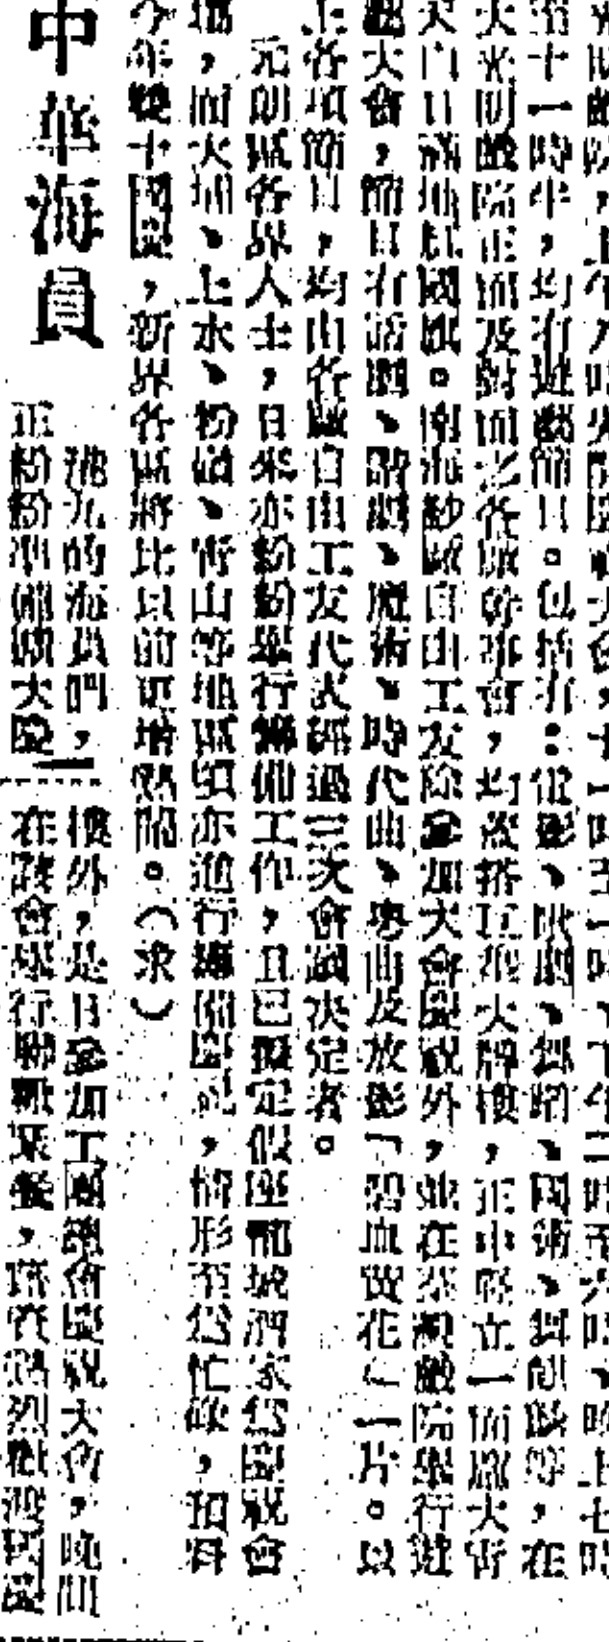 至十一時半，均有遊藝節目。包括有：電影、歌劇、舞蹈、國術、舞麒麟等，在
大光明戲院正面及對面之各廠幹事會，均並搭巨型大牌樓，正中竪立一面廣大青
天白日滿地紅國旗。南海紗廠自由工友除參加大會慶祝外，並在荃灣戲院舉行遊
藝大會，節目有話劇、諧劇、魔術、時代曲、粵曲及放影「碧血黃花」一片。以
上各項節目，均由各廠自由工友代表經過三次會議决定者。
元朗區各界人士，日來亦紛紛舉行籌備工作，且已擬定假座龍城酒家為慶祝會
塲，而大埔、上水、粉嶺、青山等地區頃亦進行籌備慶祝，情形至為忙碌，預料
今年雙十國慶，新界各區將比以前更增熱鬧。（求）
中華海員
港九的海員們，
正紛紛準備廣大慶
樓外，是日參加工團總會慶祝大會，晚間
在該會舉行聯歡聚餐，熱烈歡渡國慶